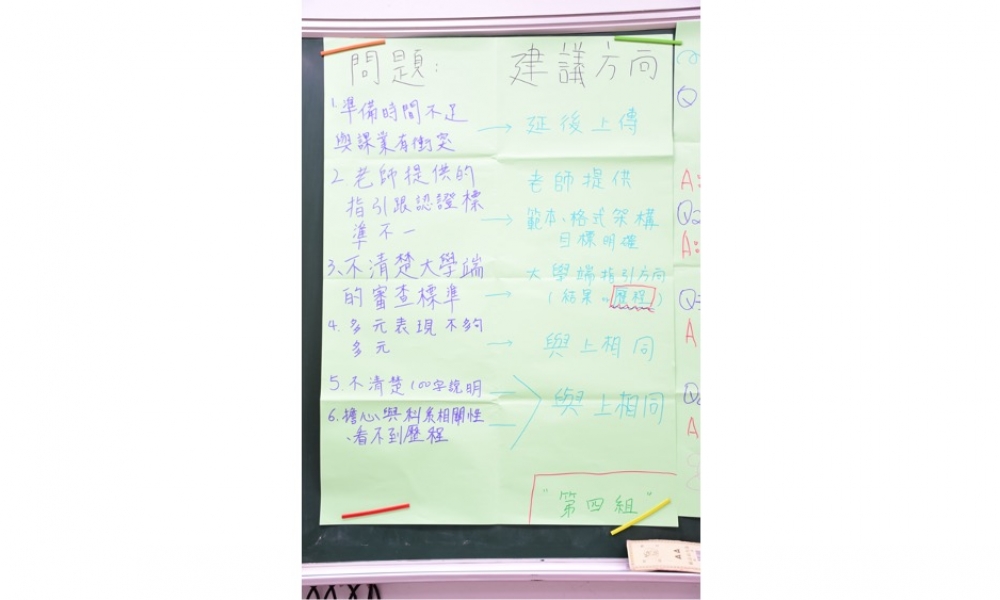 問題:
建議方向
1.準備時間不足
與課業有衝突
延後上傳
2.老師提供的
指引跟認證標
準不一
老師提供
範本、格式架構
目標明確
3、不清楚大學端
的審查標準
大學端指引方向
(結果 歷程)
4.多元表現不夠
多元
與上相同
5.不清楚100字說明
6.擔心與科系相關性
、看不到歷程
與上相同
"第四組"
Q
A:
Q2
A:
Q
A
Q
A